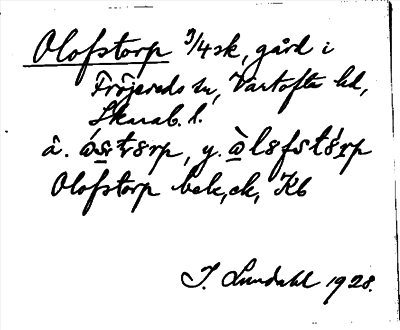 Olofstorp 3/4 sk, gård i
Fröjereds sn, Vartofta hd,
Skarab. l.
å. ó̲stɛrp, y. ò̲lɛfstɛ́rp
Olofstorp bek, ck, Kb
I. Lundahl 1928.